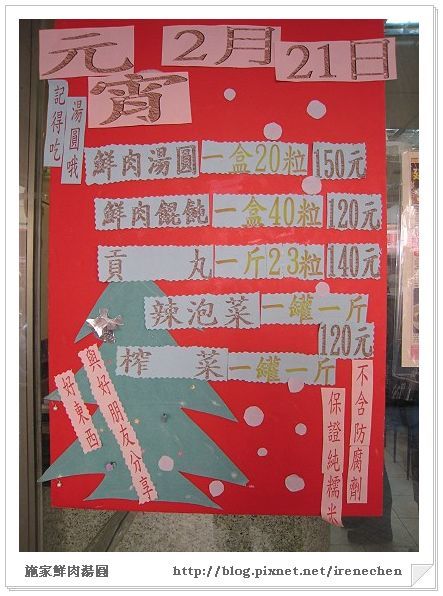 元宵
2月21日
記得吃
湯圓哦
鮮肉湯圓 一盒20粒 150元
鮮肉餛飩 一盒40粒 120元
貢丸 一斤23粒 140元
辣泡菜 一罐一斤
120元
榨菜 一罐一斤
不含防腐劑
保證純糯米
與好朋友分享
好東西
施家鮮肉湯圓
http://blog.pixnet.net/irenechen